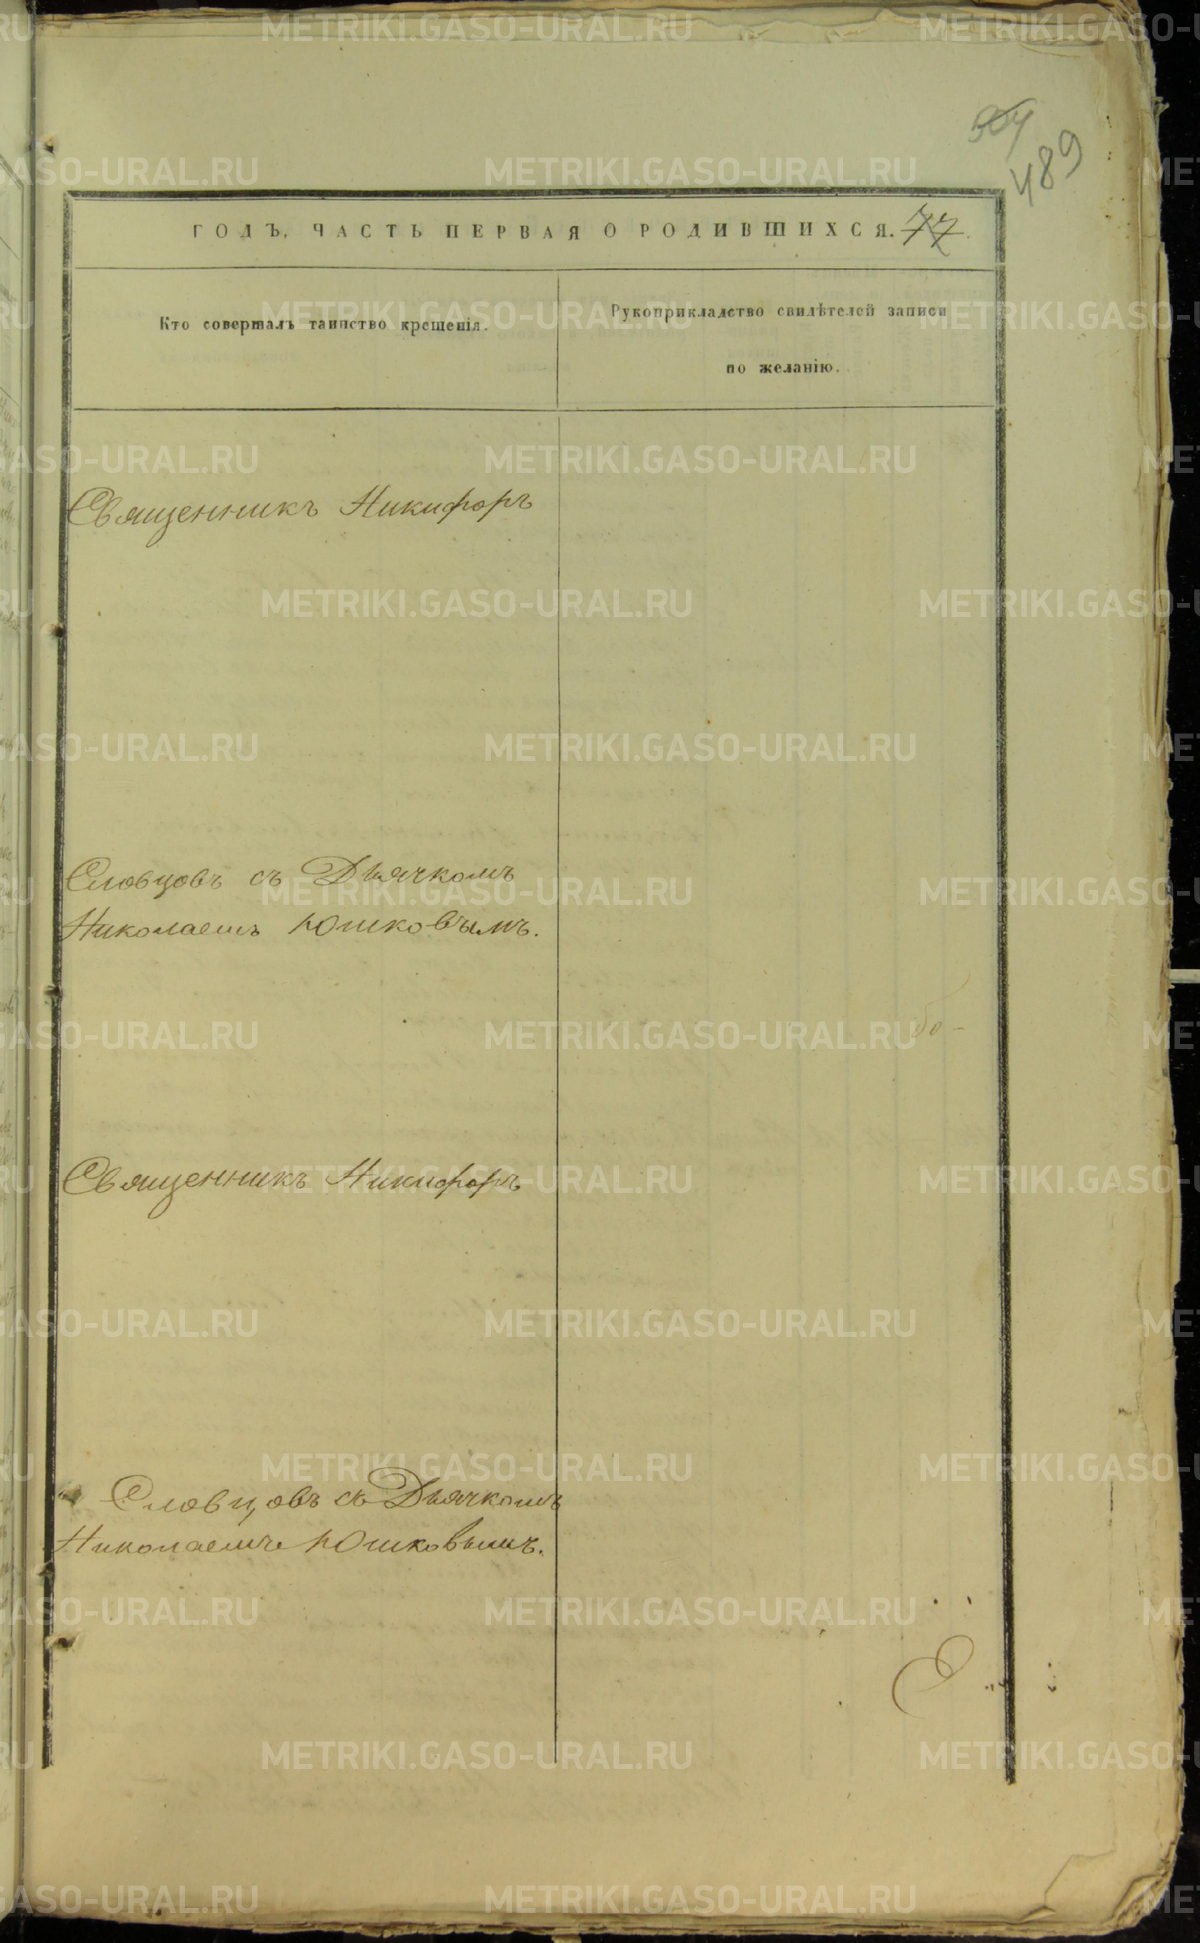 504
489
ГОДЪ. ЧАСТЬ ПЕРВАЯ О РОДИВШИХСЯ. 77
Кто совершалъ таинство крещенія.
Рукоприкладство свидѣтелей записи
по желанію.
Священникъ Никифоръ
Словцовъ съ Дьячкомъ
Николаемъ Юшковымъ.
Священникъ Никифоръ
Словцовъ съ Дьячкомъ
Николаемъ Юшковымъ.
METRIKI.GASO-URAL.RU